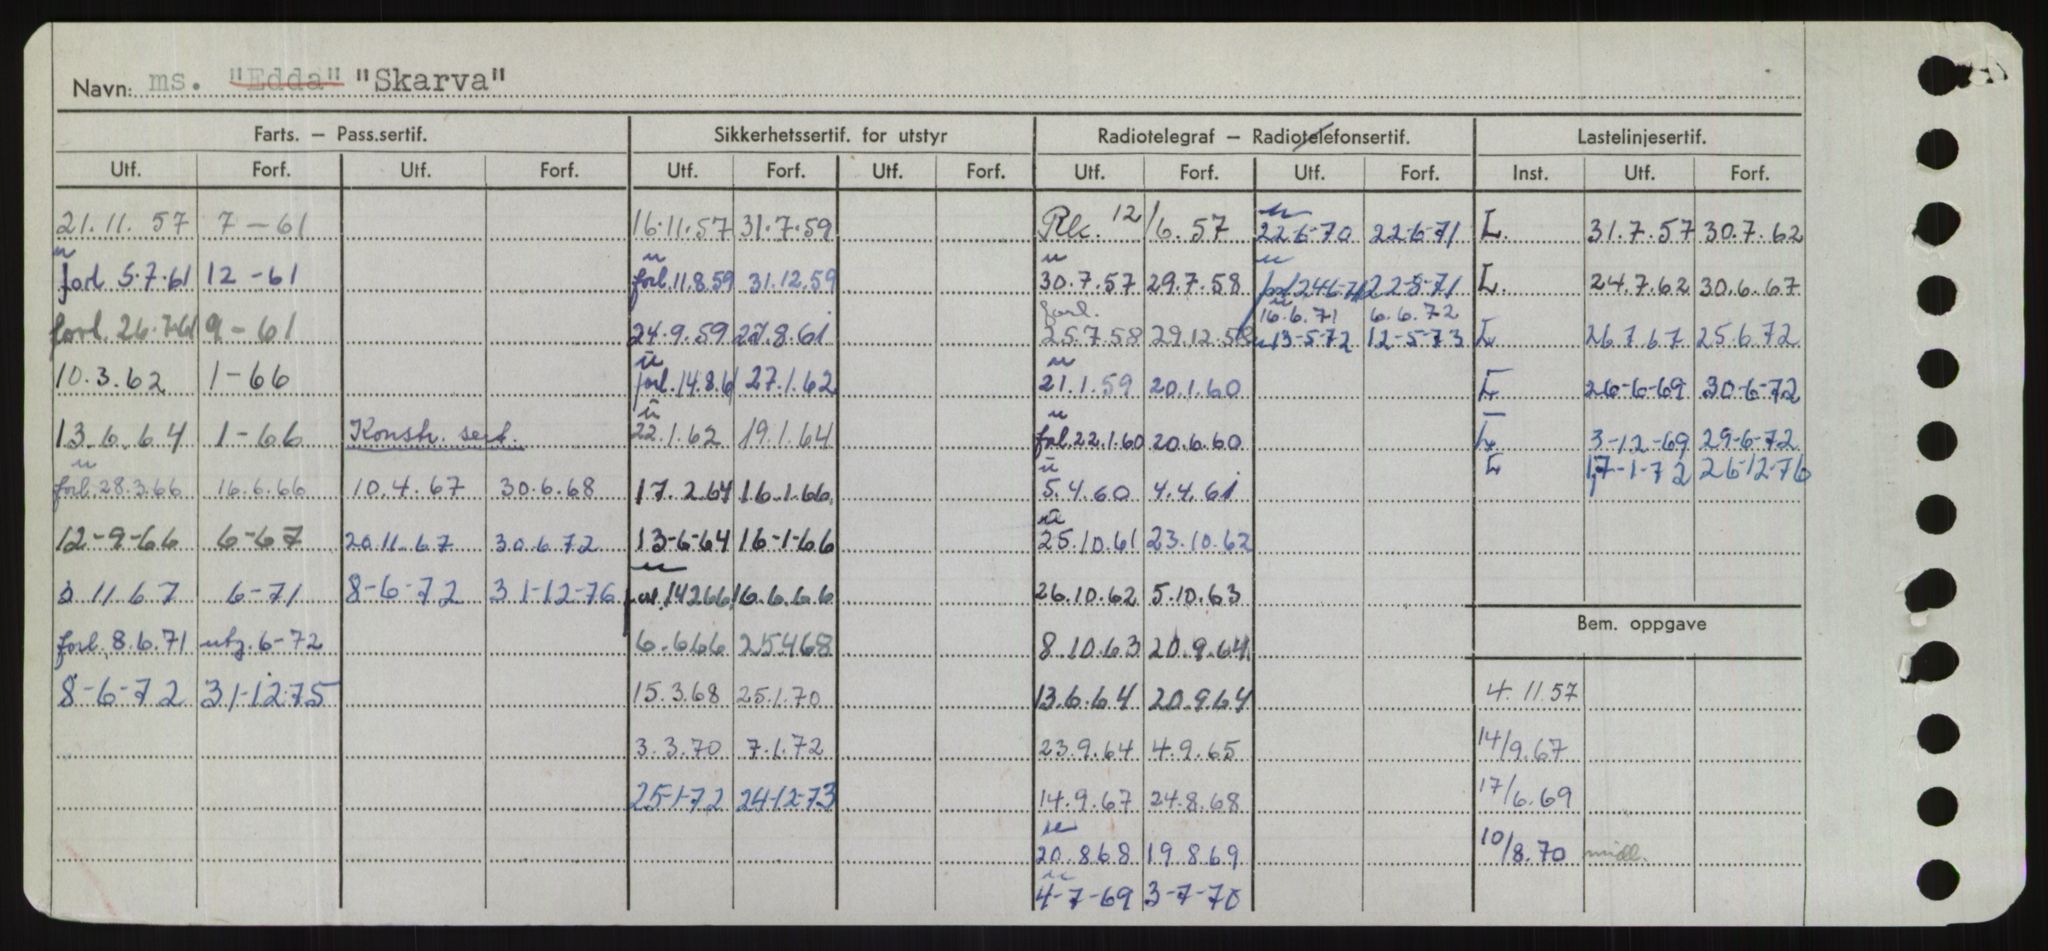 Navn: ms. "Edda" "Skarva"
Farts. — Pass.sertif. Sikkerhetssertif. for utstyr Radiotelegraf — Radiotelefonsertif. Lastelinjesertif.
Utf. Forf. Utf. Forf. Utf. Forf. Utf. Forf. Utf. Forf. Utf. Forf. Inst. Utf. Forf.
21.11.57 7-61 16.11.57 31.7.59 12/6.57 22-6-70 22-6-71 L. 31.7.57 30.7.62
forl. 5.7.61 12-61 forl. 11.8.59 31.12.59 30.7.57 29.7.58 22-8-71 L. 24.7.62 30.6.67
forl.
16.6.71 6.6.72
forl. 26.7.61 9-61 24.9.59 27.8.61 25.7.58 29.12.58 13-5-72 12-5-73 L 26.7.67 25.6.72
10.3.62 1-66 forl. 14.8.61 27.1.62 21.1.59 20.1.60 L 26-6-69 30-6-72
13.6.64 1-66 Konstr. sert. 22.1.62 19.1.64 forl. 22.1.60 20.6.60 L 3-12-69 29-6-72
L 17-1-72 26-12-76
forl. 28.3.66 16.6.66 10.4.67 30.6.68 17.2.64 16.1.66 5.4.60 4.4.61
12-9-66 6-67 20.11.67 30.6.72 13-6-64 16-1-66 25.10.61 23.10.62
3.11.67 6-71 8-6-72 31-12-76 forl. 14266 16.6.66 26.10.62 5.10.63
Bem. oppgave
forl. 8.6.71 utg. 6-72 6.666 25468 8.10.63 20.9.64
8-6-72 31-12-75 15.3.68 25.1.70 13.6.64 20.9.64 4.11.57
3.3.70 7.1.72 23.9.64 4.9.65 14/9.67
25-1-72 24-12-73 14.9.67 24.8.68 17/6.69
20.868 19.869 10/8.70 midl.
4-7-69 3-7-70